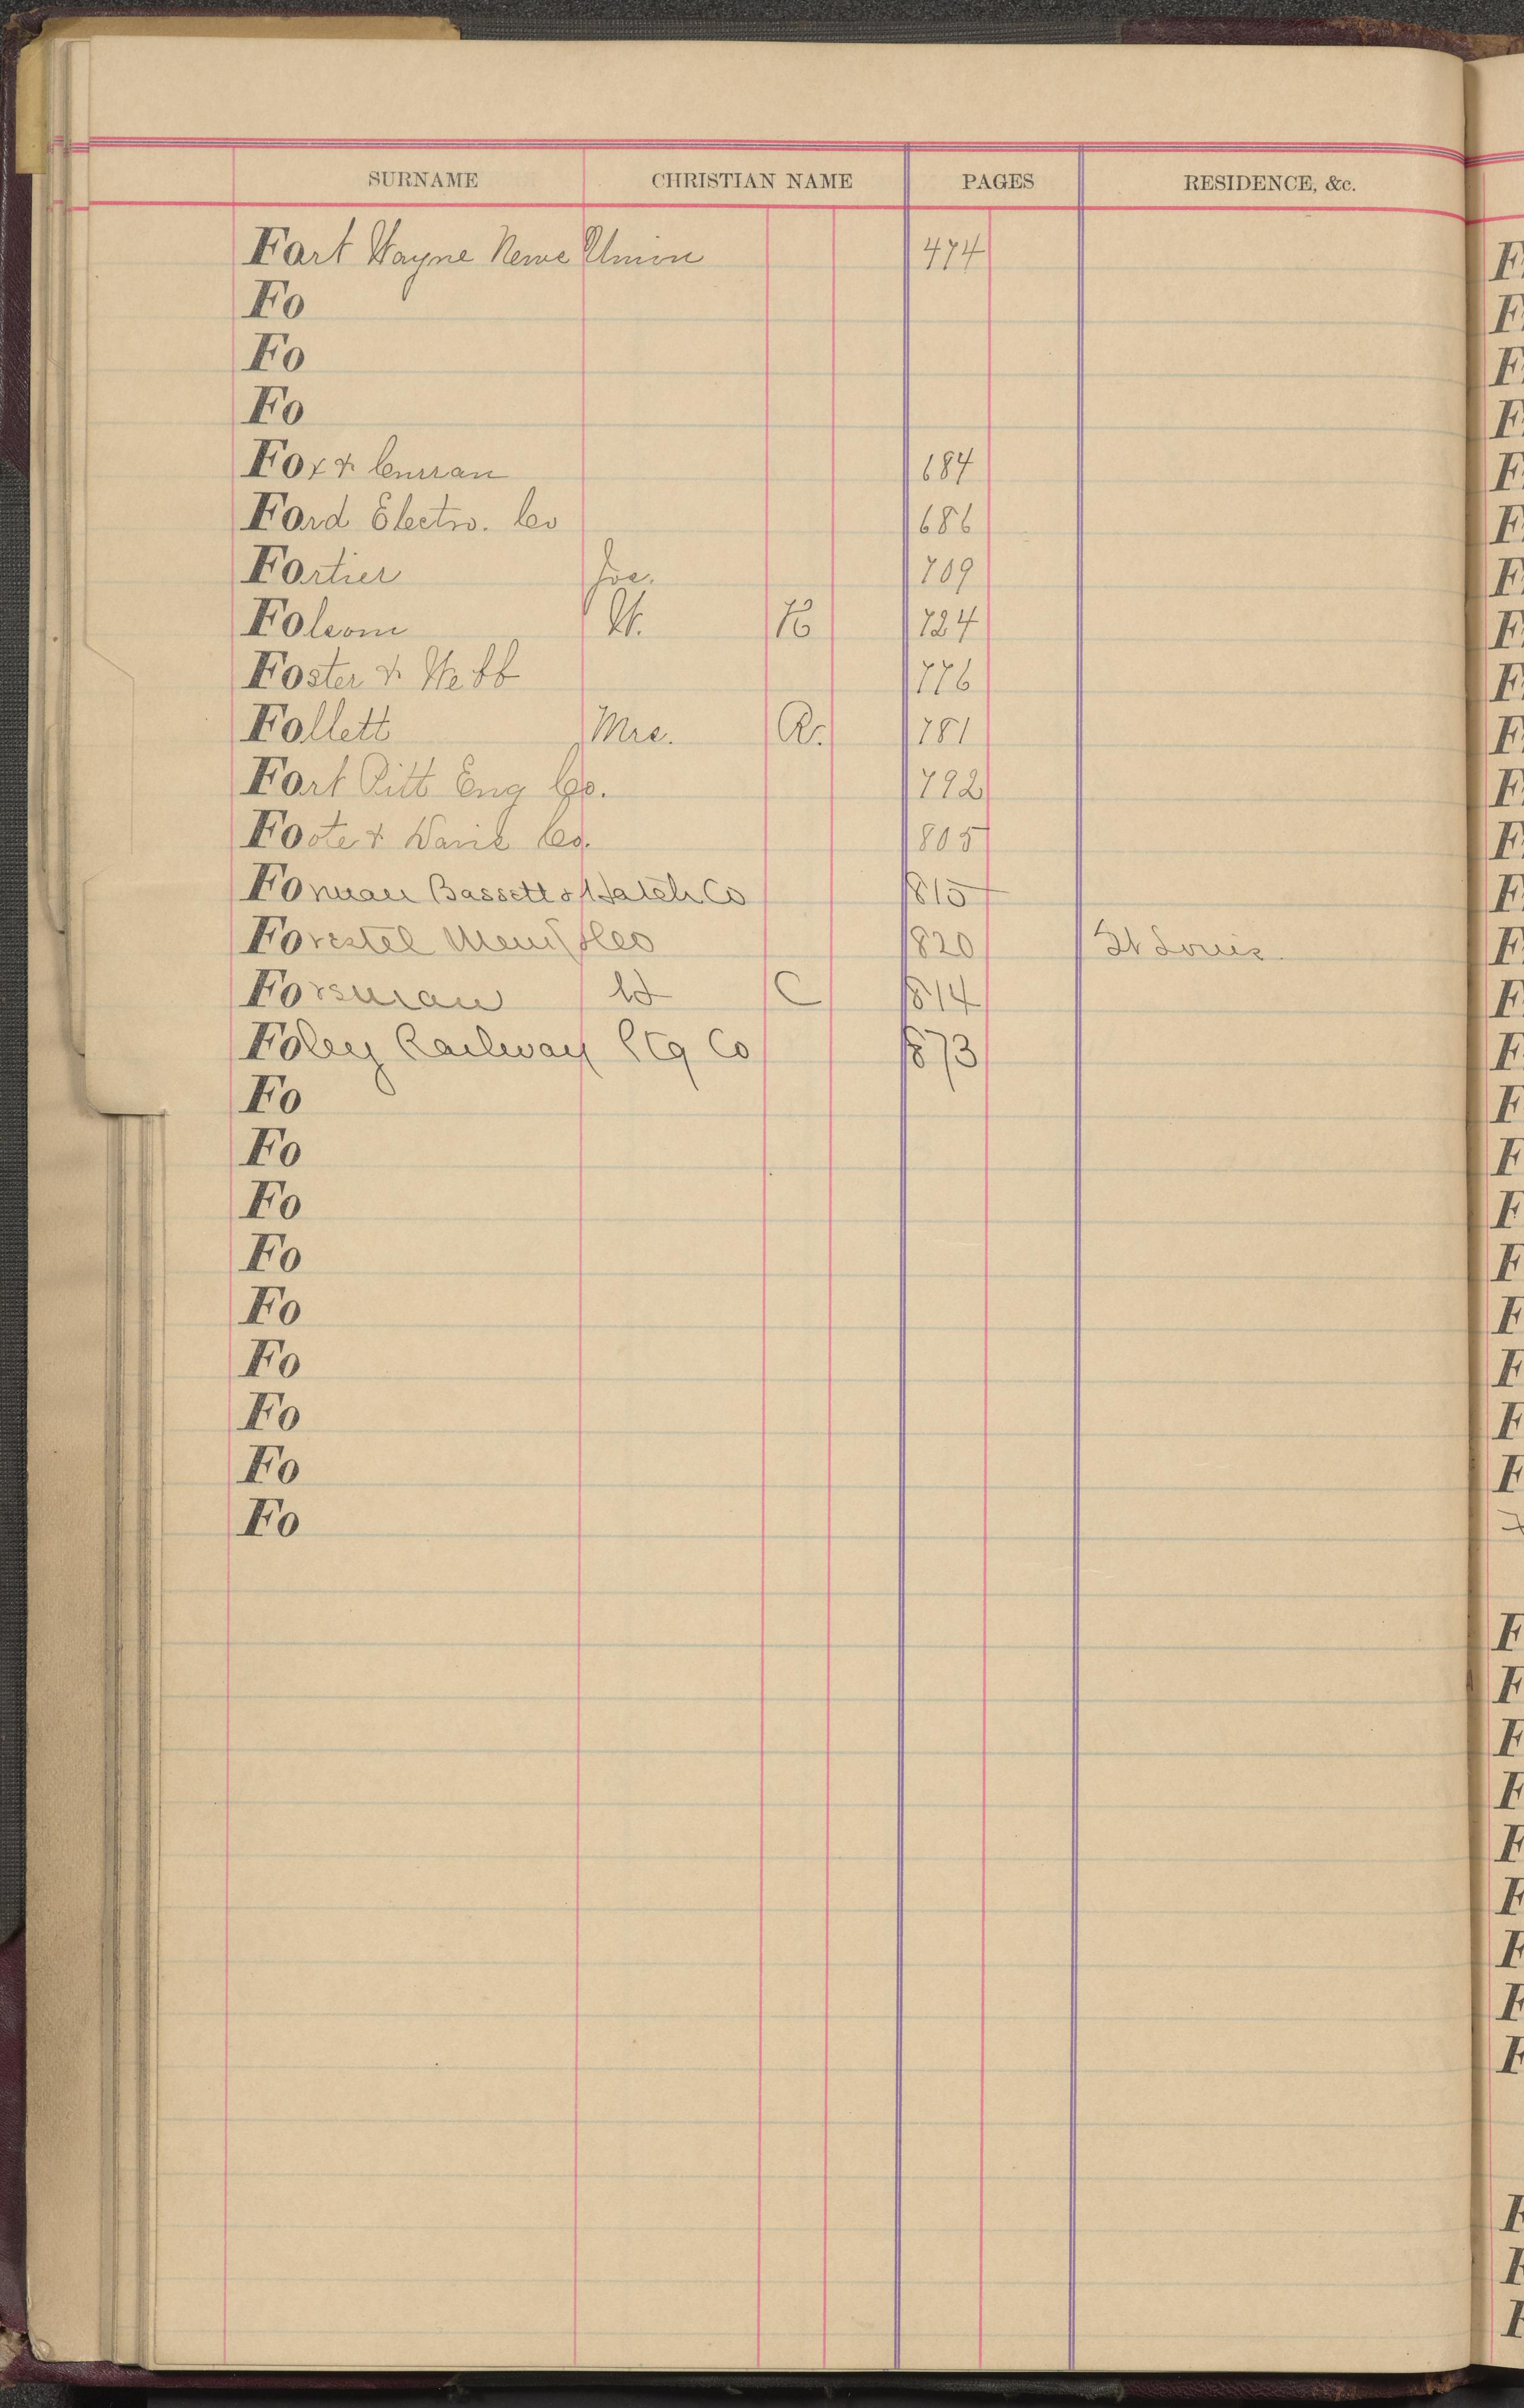 SURNAME CHRISTIAN NAME PAGES RESIDENCE, &c.
Fort Wayne News Union 474
Fo
Fo
Fo
Fox & Curran 684
Ford Electro. Co 686
Fortier Jos. 709
Folsom W. H 724
Foster & Webb 776
Follett Mrs. R. 781
Fort Pitt Eng Co. 792
Foote & Davis Co. 805
Forman Bassett & Hatch Co 815
Forestel 820 St Louis
Forsman C 814
Foley Railway Ptg Co 873
Fo
Fo
Fo
Fo
Fo
Fo
Fo
Fo
Fo